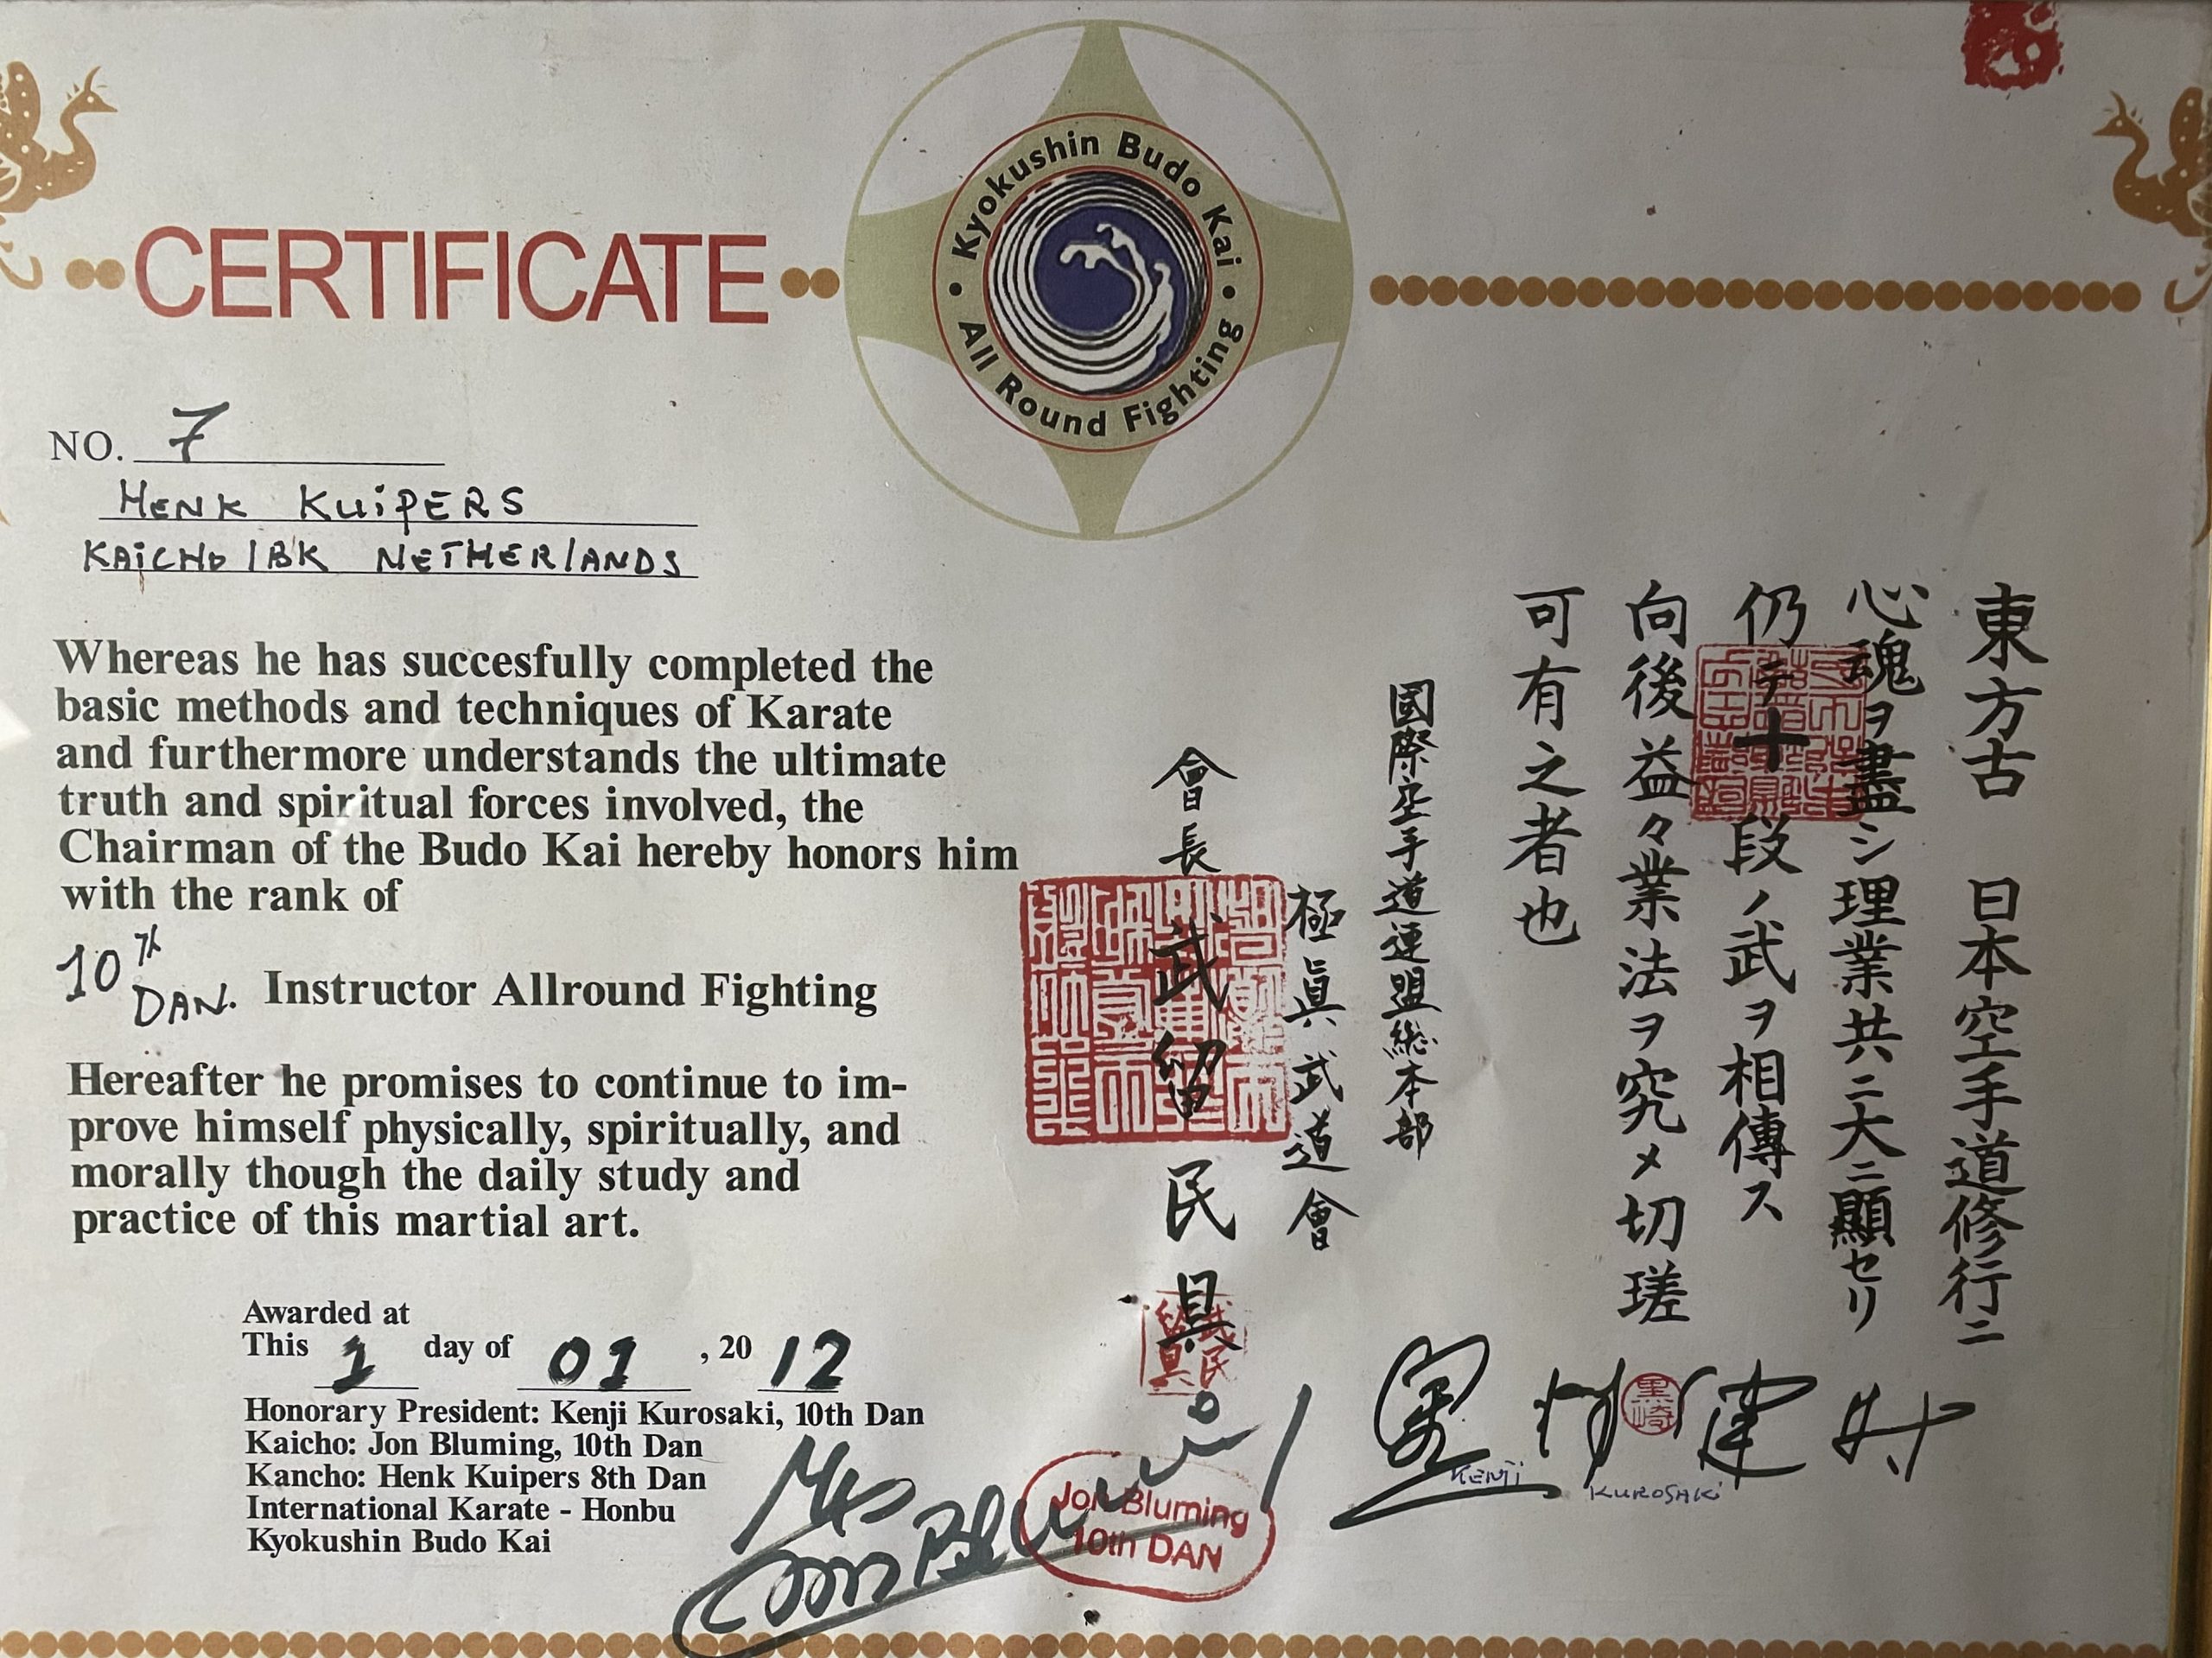 Kyokushin Budo Kai
All Round Fighting
CERTIFICATE
NO. 7
HENK KUIPERS
KAICHO IBK NETHERLANDS
Whereas he has succesfully completed the
basic methods and techniques of Karate
and furthermore understands the ultimate
truth and spiritual forces involved, the
Chairman of the Budo Kai hereby honors him
with the rank of
10th DAN. Instructor Allround Fighting
Hereafter he promises to continue to im-
prove himself physically, spiritually, and
morally though the daily study and
practice of this martial art.
Awarded at
This 1 day of 01 , 2012
Honorary President: Kenji Kurosaki, 10th Dan
Kaicho: Jon Bluming, 10th Dan
Kancho: Henk Kuipers 8th Dan
International Karate - Honbu
Kyokushin Budo Kai
東方古 日本空手道修行ニ
心魂ヲ盡シ理業共ニ大ニ顯セリ
仍テ十段ノ武ヲ相傳ス
向後益々業法ヲ究メ切瑳
可有之者也
國際空手道連盟総本部
極眞武道會
會長 武留民具
武民留具
Jon Bluming
Jon Bluming
10th DAN
黒崎
KENJI KUROSAKI